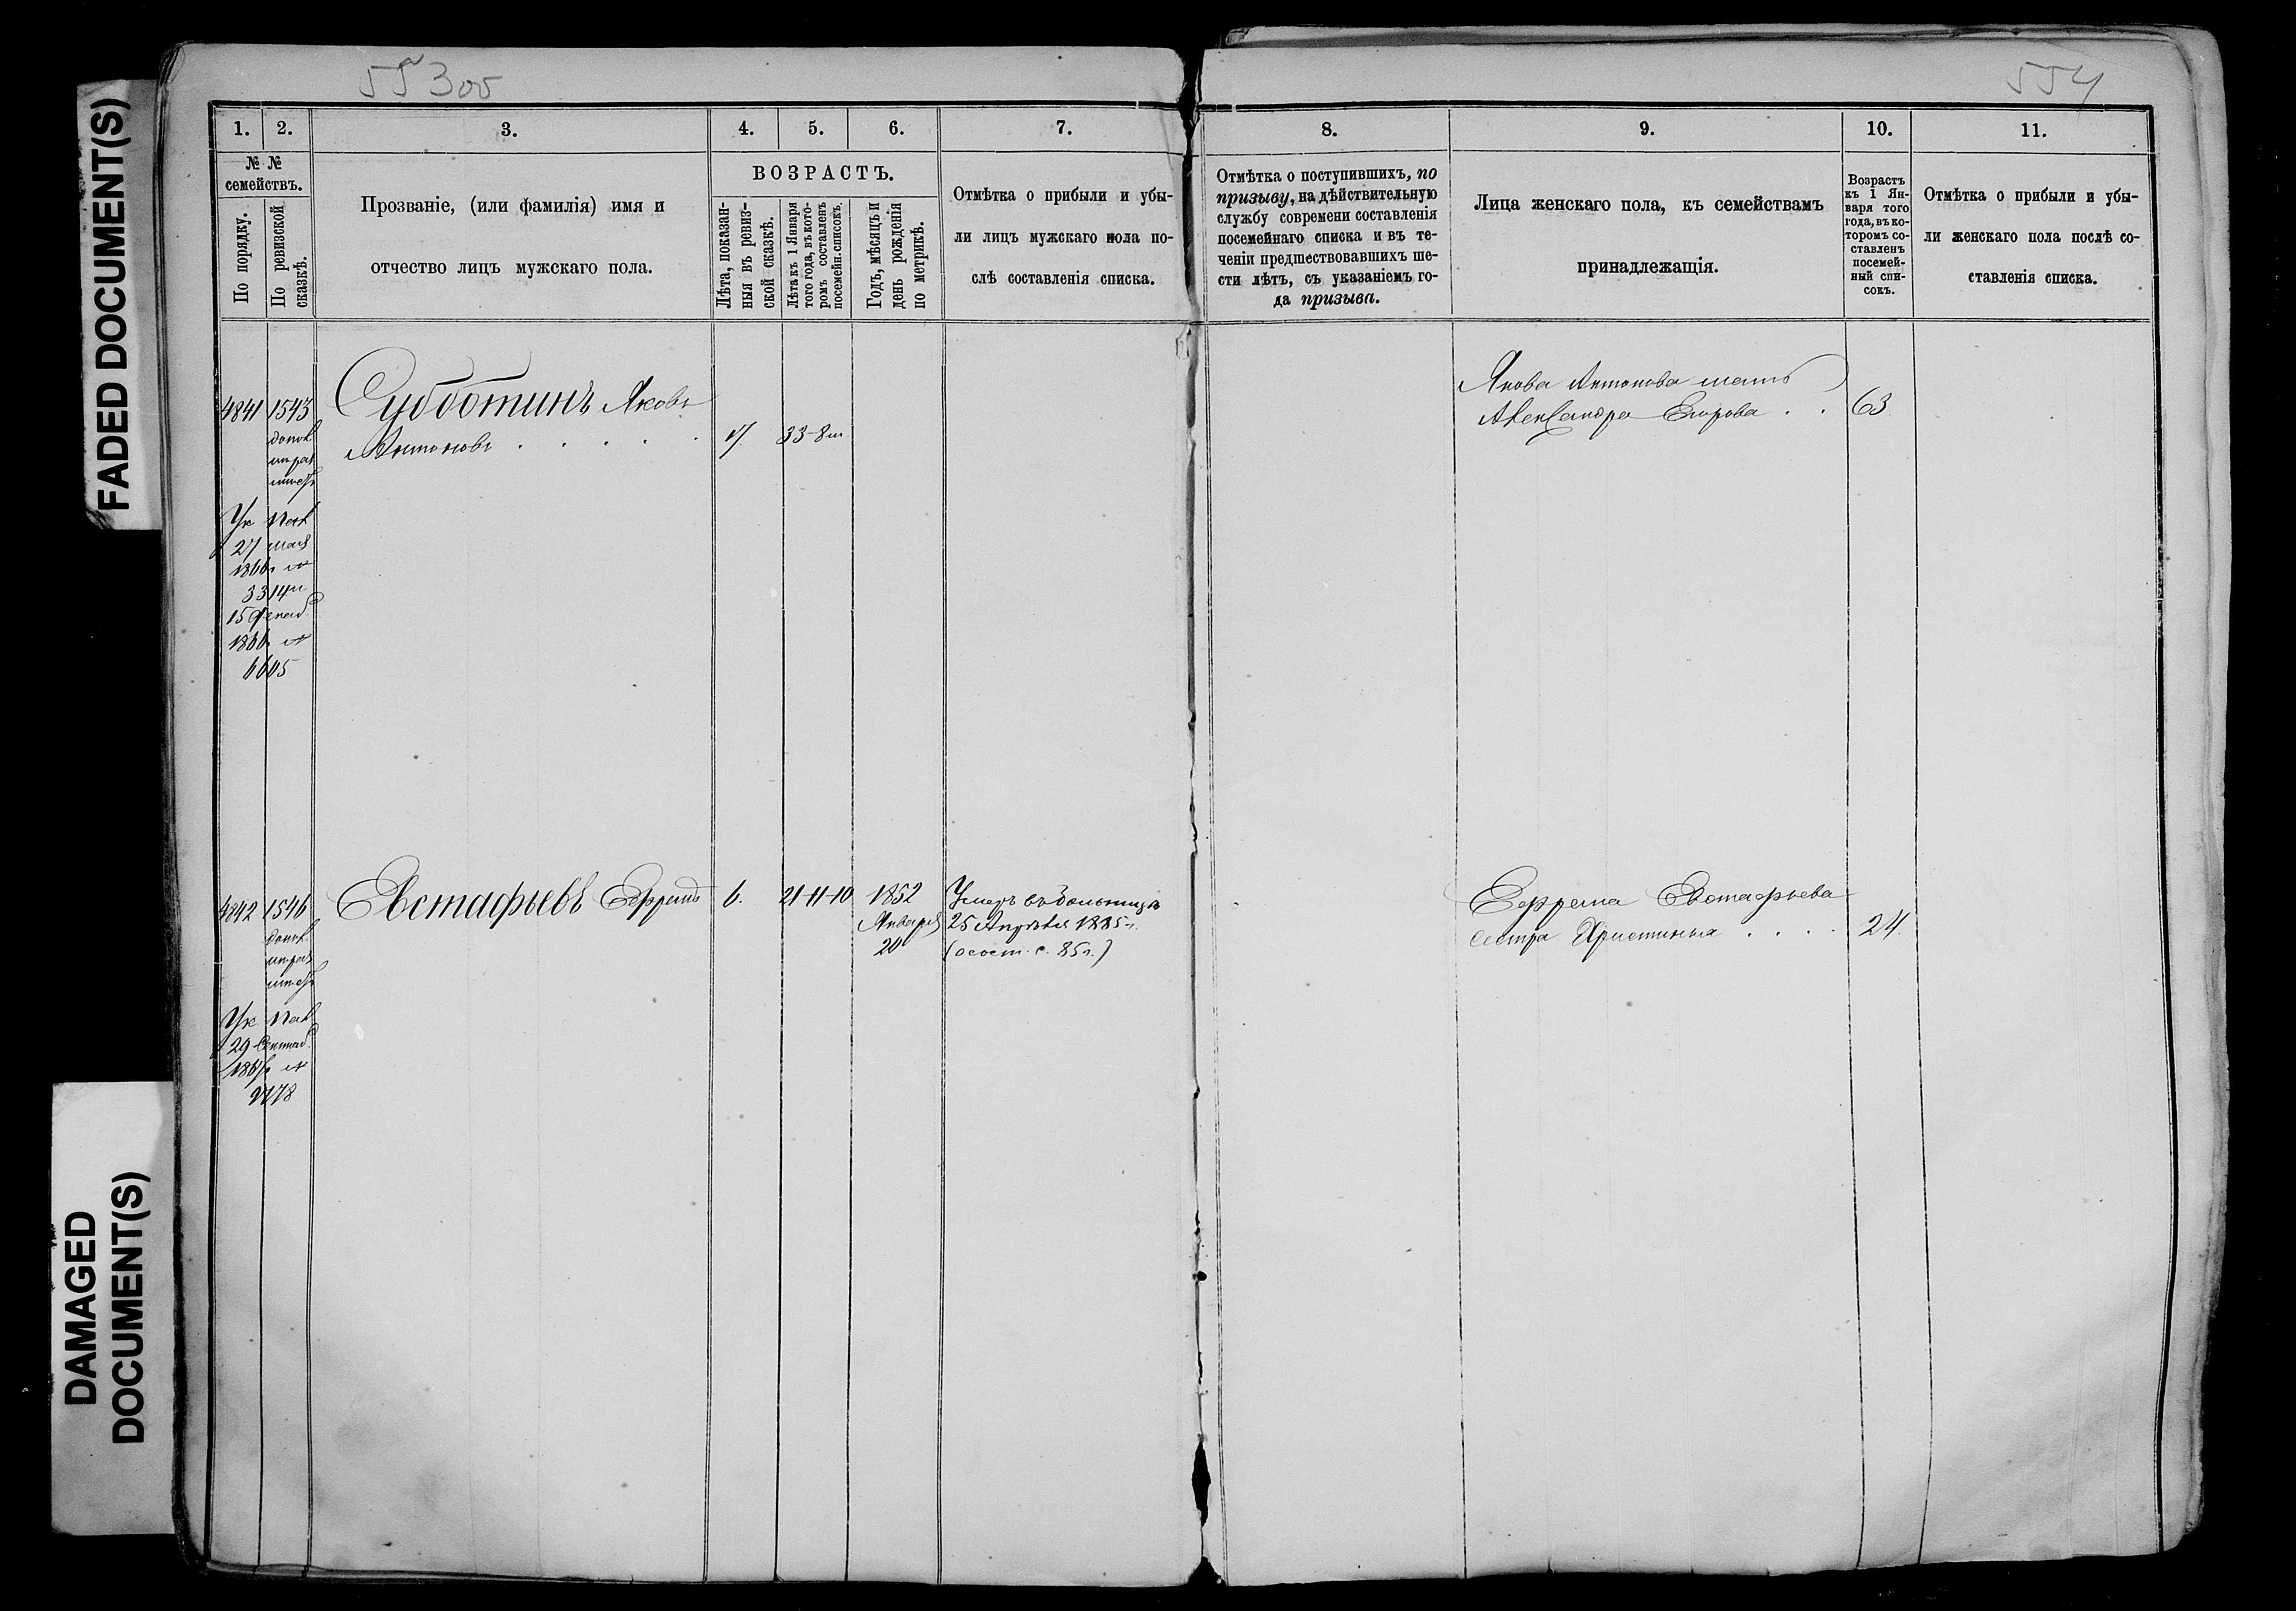 FADED DOCUMENT(S)
DAMAGED
DOCUMENT(S)
553 об
554
1.
2.
3.
4.
5.
6.
7.
№ №
семействъ.
По порядку.
По ревизской
сказкѣ.
Прозваніе, (или фамилія) имя и
отчество лицъ мужскаго пола.
ВОЗРАСТЪ.
Лѣта, показан-
ныя въ ревиз-
ской сказкѣ.
Лѣта къ 1 Января
того года, въ кото-
ромъ составленъ
посемейн. списокъ.
Годъ, мѣсяцъ и
день рожденія
по метрикѣ.
Отмѣтка о прибыли и убы-
ли лицъ мужскаго пола по-
слѣ составленія списка.
8.
9.
10.
11.
Отмѣтка о поступившихъ, по
призыву, на дѣйствительную
службу современи составленія
посемейнаго списка и въ те-
ченіи предшествовавшихъ ше-
сти лѣтъ, съ указаніемъ го-
да призыва.
Лица женскаго пола, къ семействамъ
принадлежащія.
Возрастъ
къ 1 Ян-
варя того
года, въ ко-
торомъ со-
ставленъ
посемей-
ный спи-
сокъ.
Отмѣтка о прибыли и убы-
ли женскаго пола послѣ со-
ставленія списка.
4841 1543 Субботинъ Яковъ
Антоновъ . . . . . 33-8м
27
1866г №
3314 и
15
1866 №
6605
Якова Антонова мать
Александра Егорова . . 63
4842 1546 Евстафьевъ Ефремъ 6. 21-11-10 1852
Января
20
Умеръ въ больницѣ
25 Апрѣля 1885г.
(осост. с. 85г.)
29
№
Ефрема Евстафьева
сестра Христинья . . . . 24.